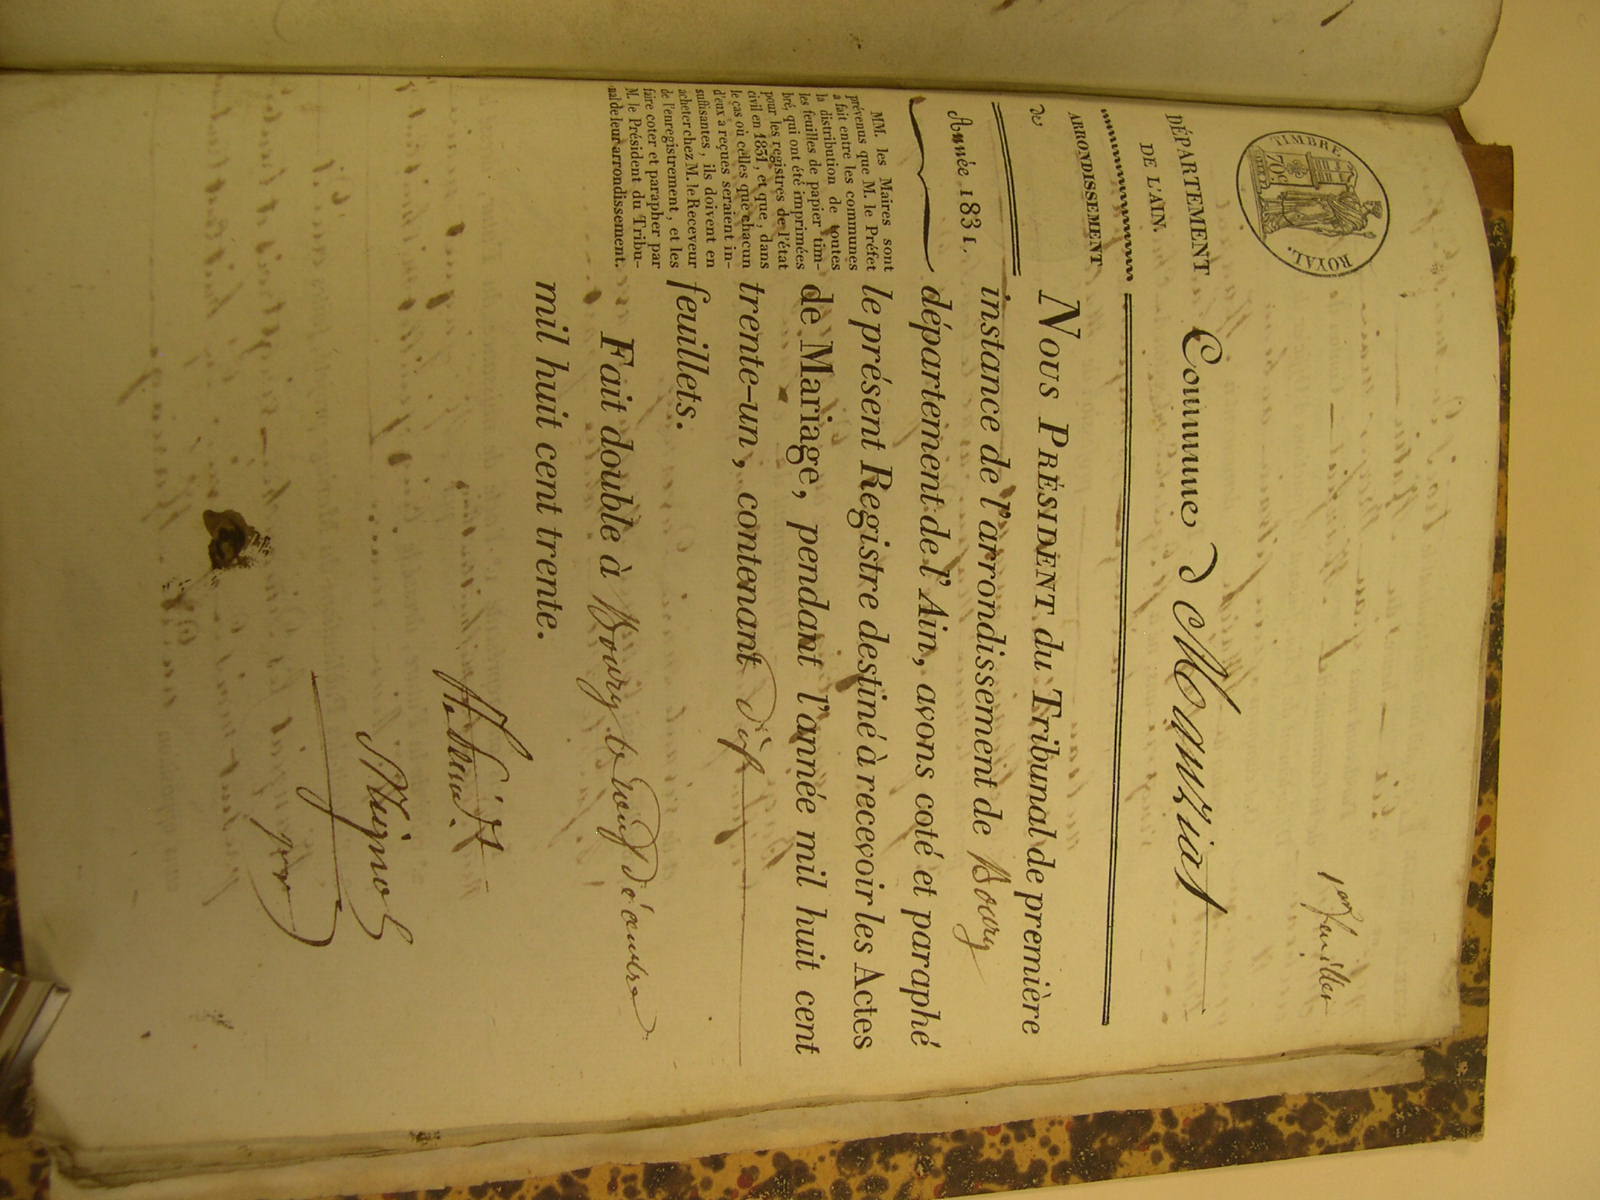 1er feuillet
TIMBRE ROYAL.
70c
DÉPARTEMENT
DE L'AIN.
ARRONDISSEMENT
de
Année 1831.
MM. les Maires sont
prévenus que M. le Préfet
a fait entre les communes
la distribution de toutes
les feuilles de papier tim-
bré, qui ont été imprimées
pour les registres de l'état
civil en 1831, et que, dans
le cas où celles que chacun
d'eux a reçues seraient in-
suffisantes, ils doivent en
acheter chez M. le Receveur
de l'enregistrement, et les
faire coter et parapher par
M. le Président du Tribu-
nal de leur arrondissement.
Commune d Manziat
NOUS PRÉSIDENT du Tribunal de première
instance de l'arrondissement de Bourg
département de l'Ain, avons coté et paraphé
le présent Registre destiné à recevoir les Actes
de Mariage, pendant l'année mil huit cent
trente-un, contenant dix
feuillets.
Fait double à Bourg le Vingt décembre
mil huit cent trente.